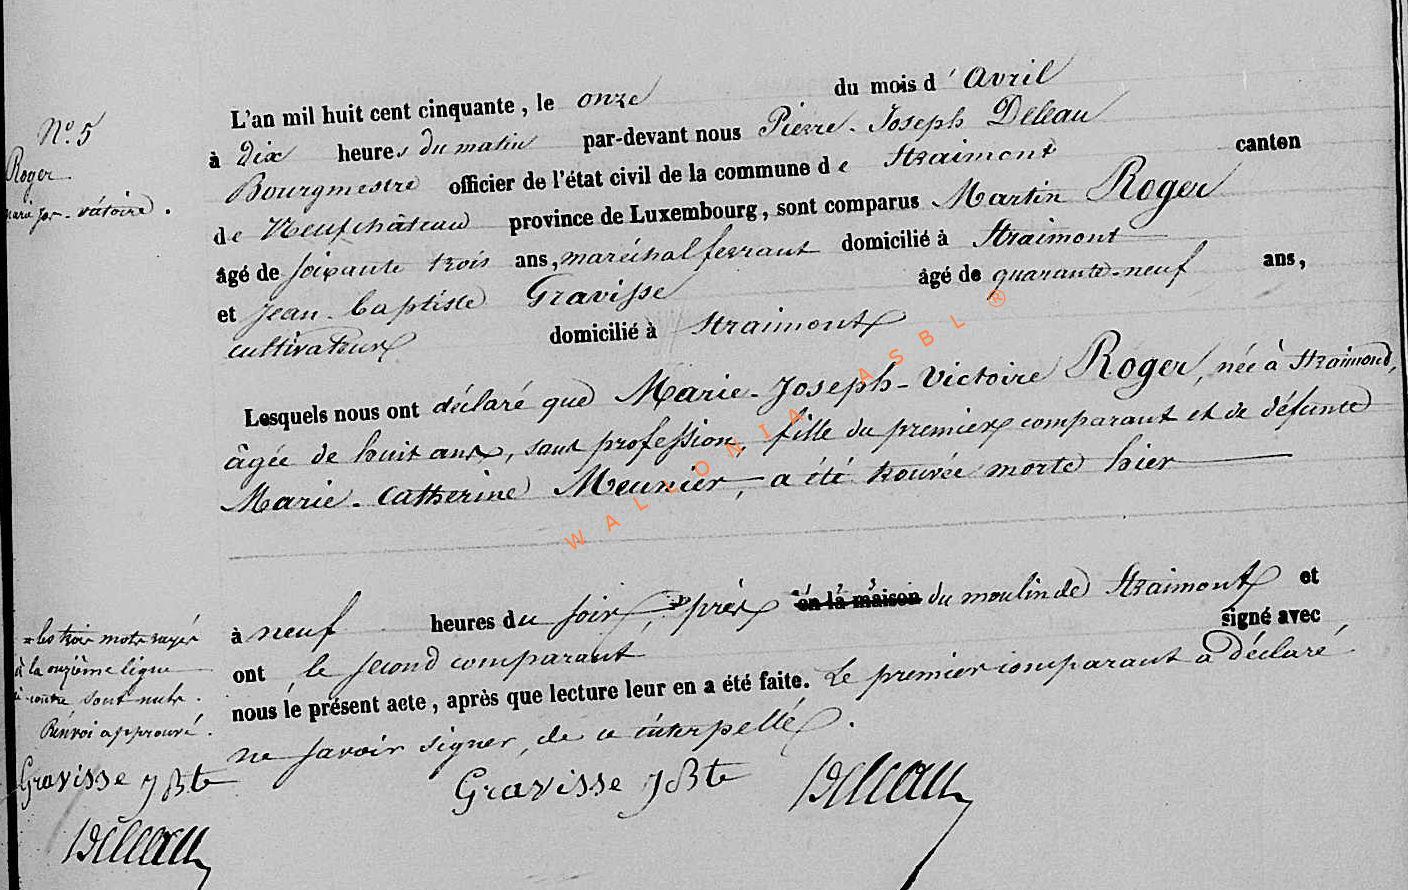 N.° 5
Roger
Marie Jos - victoire.
L'an mil huit cent cinquante, le onze du mois d'Avril
à dix heures du matin par-devant nous Pierre-Joseph Deleau
Bourgmestre officier de l'état civil de la commune de Straimont canton
de Neufchâteau province de Luxembourg, sont comparus Martin Roger
âgé de soixante trois ans, maréchal ferrant domicilié à Straimont
et Jean-baptiste Gravisse âgé de quarante-neuf ans,
cultivateur domicilié à Straimont
Lesquels nous ont déclaré que Marie-Joseph-Victoire Roger, née à Straimond,
âgée de huit ans, sans profession, fille du premier comparant et de défunte
Marie-Catherine Meunier, a été trouvée morte hier
à neuf heures du soir, près en la maison du moulin de Straimont et
ont le second comparant signé avec
nous le présent acte, après que lecture leur en a été faite. Le premier comparant a déclaré
ne savoir signer, de ce interpellé.
les trois mots rayés
à la onzième ligne
ci-contre sont nuls.
Renvoi approuvé.
Gravisse JBte
Delleau
Gravisse JBte
Delleau
WALLONIA ASBL ®